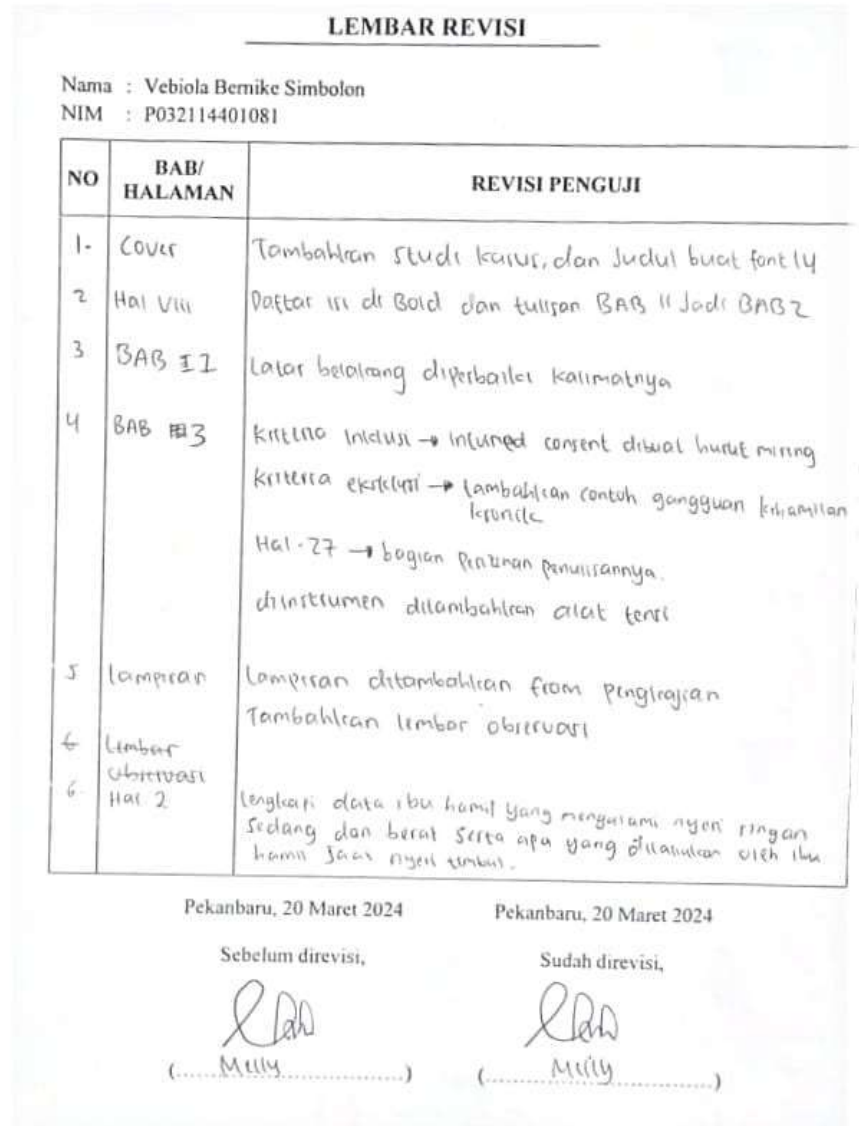 LEMBAR REVISI
Nama : Vebiola Bernike Simbolon
NIM : P032114401081
NO BAB/ HALAMAN REVISI PENGUJI
1. Cover Tambahkan studi kasus, dan Judul buat font 14
2 Hal Viii Daftar isi di Bold dan tulisan BAB II Jadi BAB 2
3 BAB Latar belakang diperbaiki kalimatnya
4 BAB 3 kriteria inklusi → consent dibuat huruf miring
kriteria eksklusi → tambahkan contoh gangguan kehamilan
kronik
Hal. 27 → bagian penulisannya.
diinstrumen ditambahkan alat tensi
5 lampiran Lampiran ditambahkan from pengkajian
Tambahkan lembar observasi
6 Lembar
observasi
6. Hal 2 lengkapi data ibu hamil yang mengalami nyeri ringan
sedang dan berat serta apa yang dilakukan oleh ibu
hamil saat nyeri timbul.
Pekanbaru, 20 Maret 2024 Pekanbaru, 20 Maret 2024
Sebelum direvisi, Sudah direvisi,
(..... Melly ..............) (.......... Melly ..............)